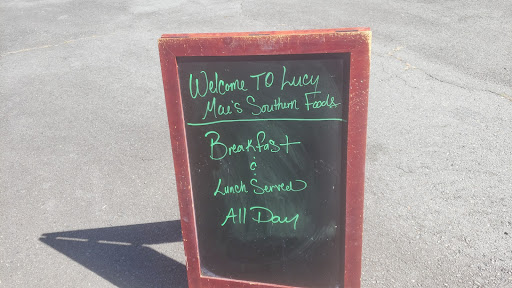 Welcome TO Lucy
Mae's Southern Foods
Breakfast
&
Lunch Served
All Day